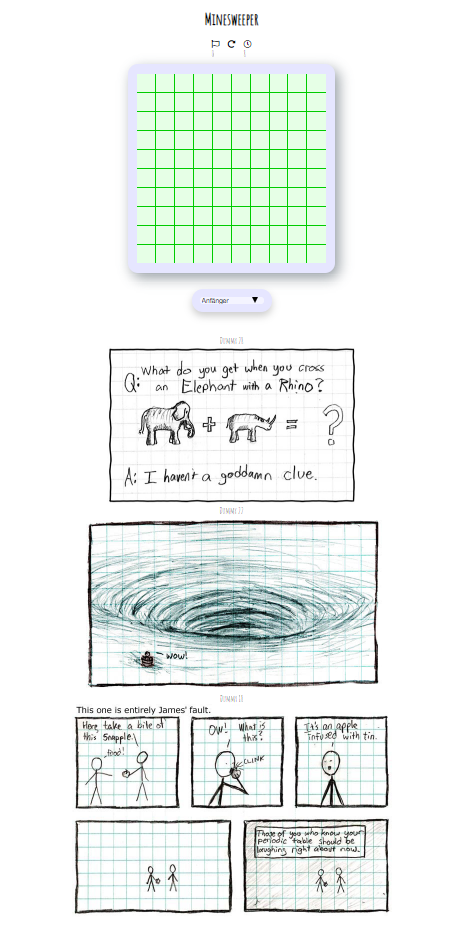 Minesweeper
Anfänger
What do you get when you cross
Q: an Elephant with a Rhino?
+ = ?
A: I haven't a goddamn clue.
wow!
This one is entirely James' fault.
Here, take a bite of
this Snapple.
food!
Ow! What is
this?
CLINK
It's an apple
infused with tin.
Those of you who know your
periodic table should be
laughing right about now.